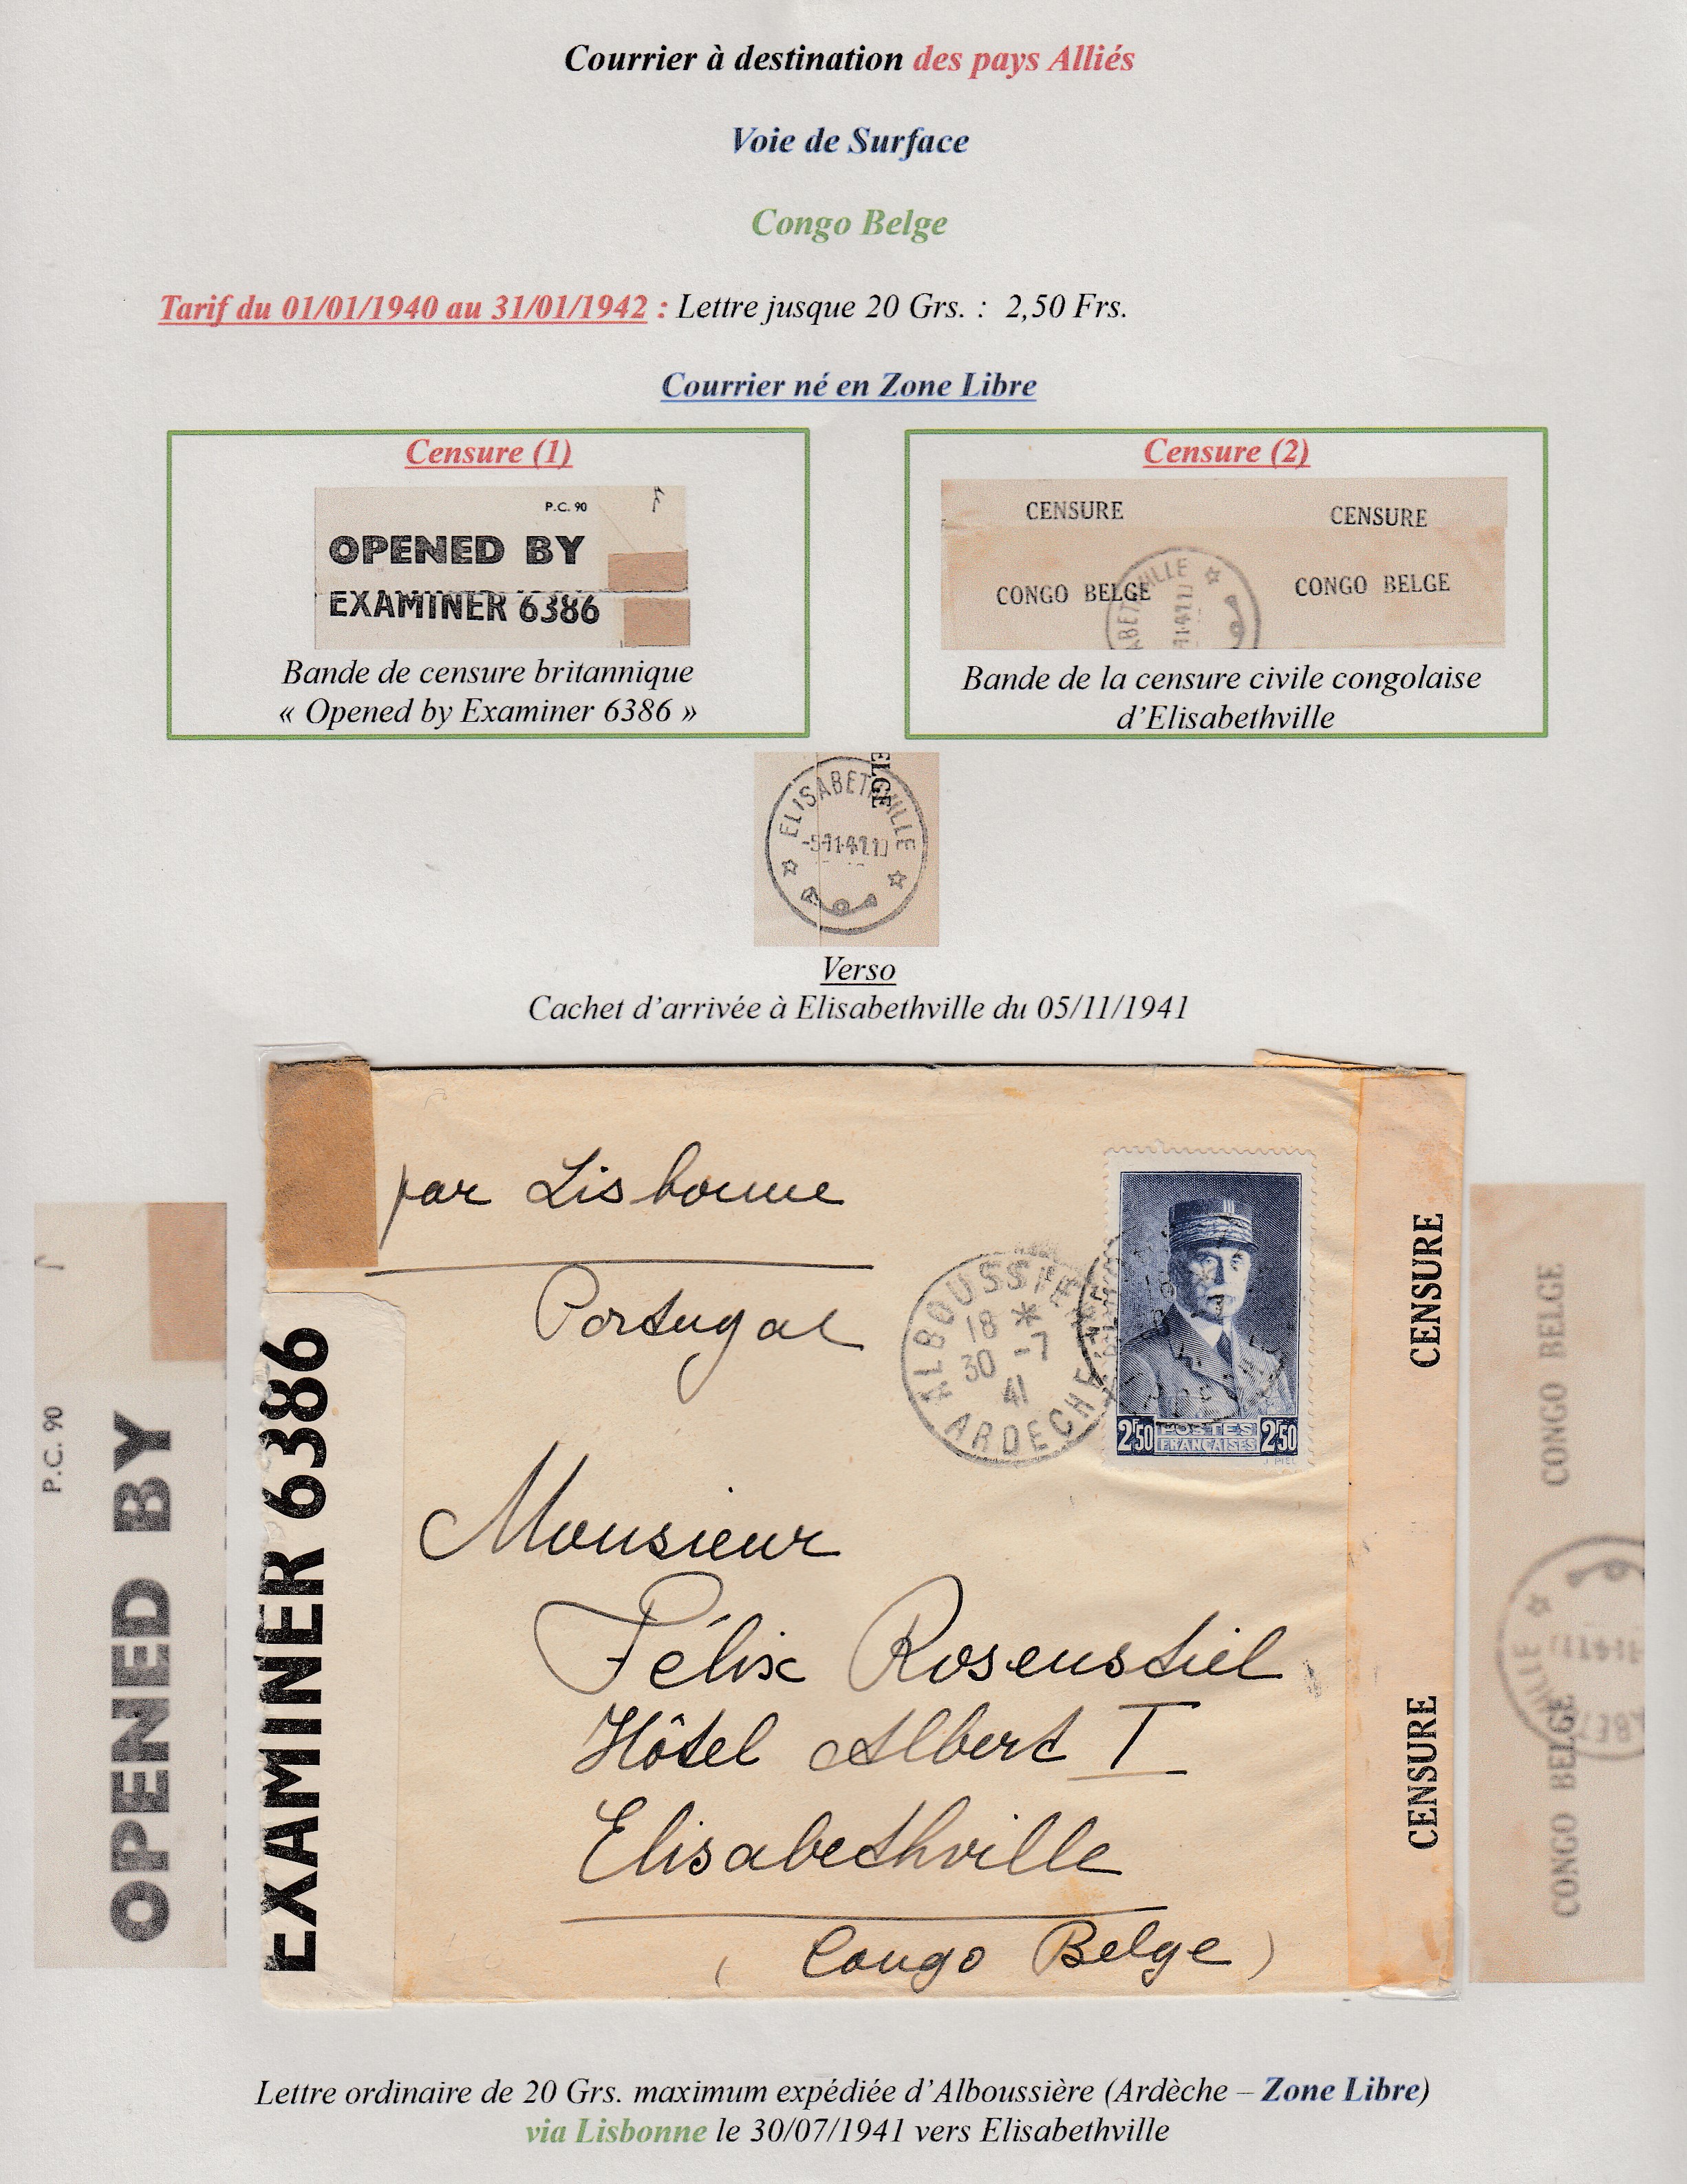 Courrier à destination des pays Alliés
Voie de Surface
Congo Belge
Tarif du 01/01/1940 au 31/01/1942 : Lettre jusque 20 Grs. : 2,50 Frs.
Courrier né en Zone Libre
Censure (1)
P.C. 90
OPENED BY
EXAMINER 6386
Bande de censure britannique
« Opened by Examiner 6386 »
Censure (2)
CENSURE CENSURE
CONGO BELGE CONGO BELGE
Bande de la censure civile congolaise
d’Elisabethville
ELGE
ELISABETHVILLE
-5-11-41
Verso
Cachet d’arrivée à Elisabethville du 05/11/1941
P.C. 90
OPENED BY
EXAMINER 6386
par Lisbonne
Portugal
ALBOUSSIERE
18 *
30 -7
41
ARDECHE
2F50 POSTES FRANÇAISES 2F50
J. PIEL
Monsieur
Félix Rosenstiel
Hôtel Albert I
Elisabethville
( Congo Belge )
CENSURE
CENSURE
CONGO BELGE
CONGO BELGE
Lettre ordinaire de 20 Grs. maximum expédiée d’Alboussière (Ardèche – Zone Libre)
via Lisbonne le 30/07/1941 vers Elisabethville